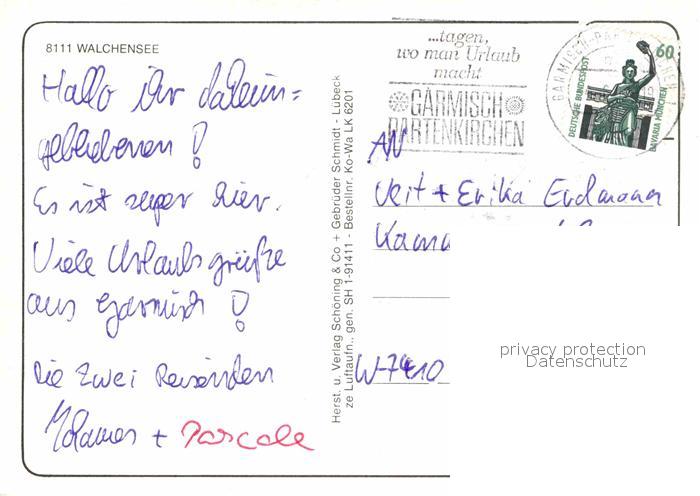 8111 WALCHENSEE
Hallo ihr daheim=
gebliebenen !
Es ist super hier.
Viele Urlaubsgrüße
aus Garmisch !
Die zwei Reisenden
+ Pascale
Herst. u. Verlag Schöning & Co + Gebrüder Schmidt - Lübeck
ze Luftaufn., gen. SH 1-91411 - Bestellnr. Ko-Wa LK 6201
...tagen,
wo man Urlaub
macht
GARMISCH
PARTENKIRCHEN
60
DEUTSCHE BUNDESPOST
BAVARIA MÜNCHEN
AN
Veit + Erika Erdmann
W-7410
privacy protection
Datenschutz